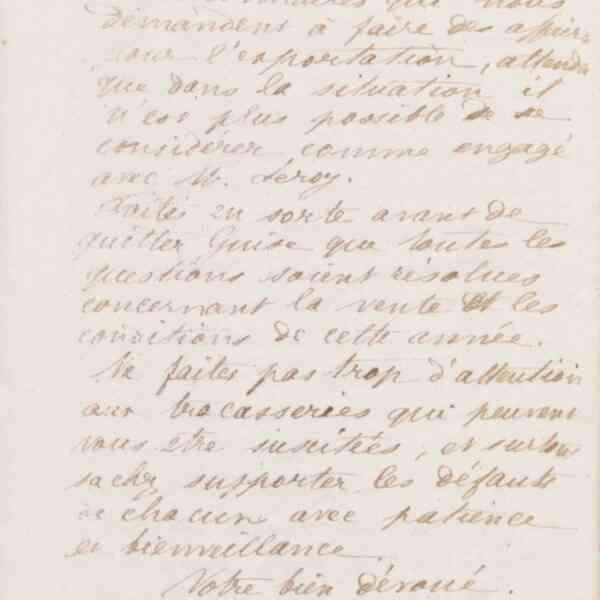 qui nous
demandent à faire des affaires
pour l'exportation, attendu
que dans la situation il
n'est plus possible de se
considérer comme engagé
avec M. Leroy.
Faites en sorte avant de
quitter Guise que toutes les
questions soient résolues
concernant la vente et les
conditions de cette année.
Ne faites pas trop d'attention
aux tracasseries qui peuvent
vous être suscitées, et surtout
sachez supporter les défauts
de chacun avec patience
et bienveillance.
Votre bien dévoué.